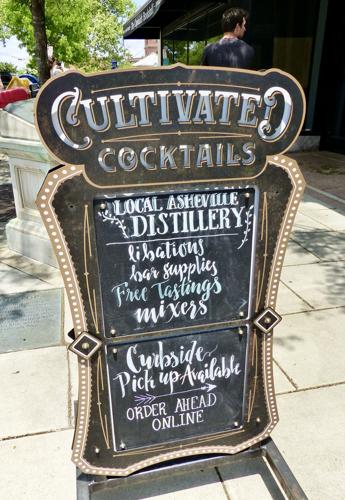 CULTIVATED
COCKTAILS
LOCAL ASHEVILLE
DISTILLERY
libations
bar supplies
Free Tastings
mixers
Curbside
Pick up Available
ORDER AHEAD
ONLINE